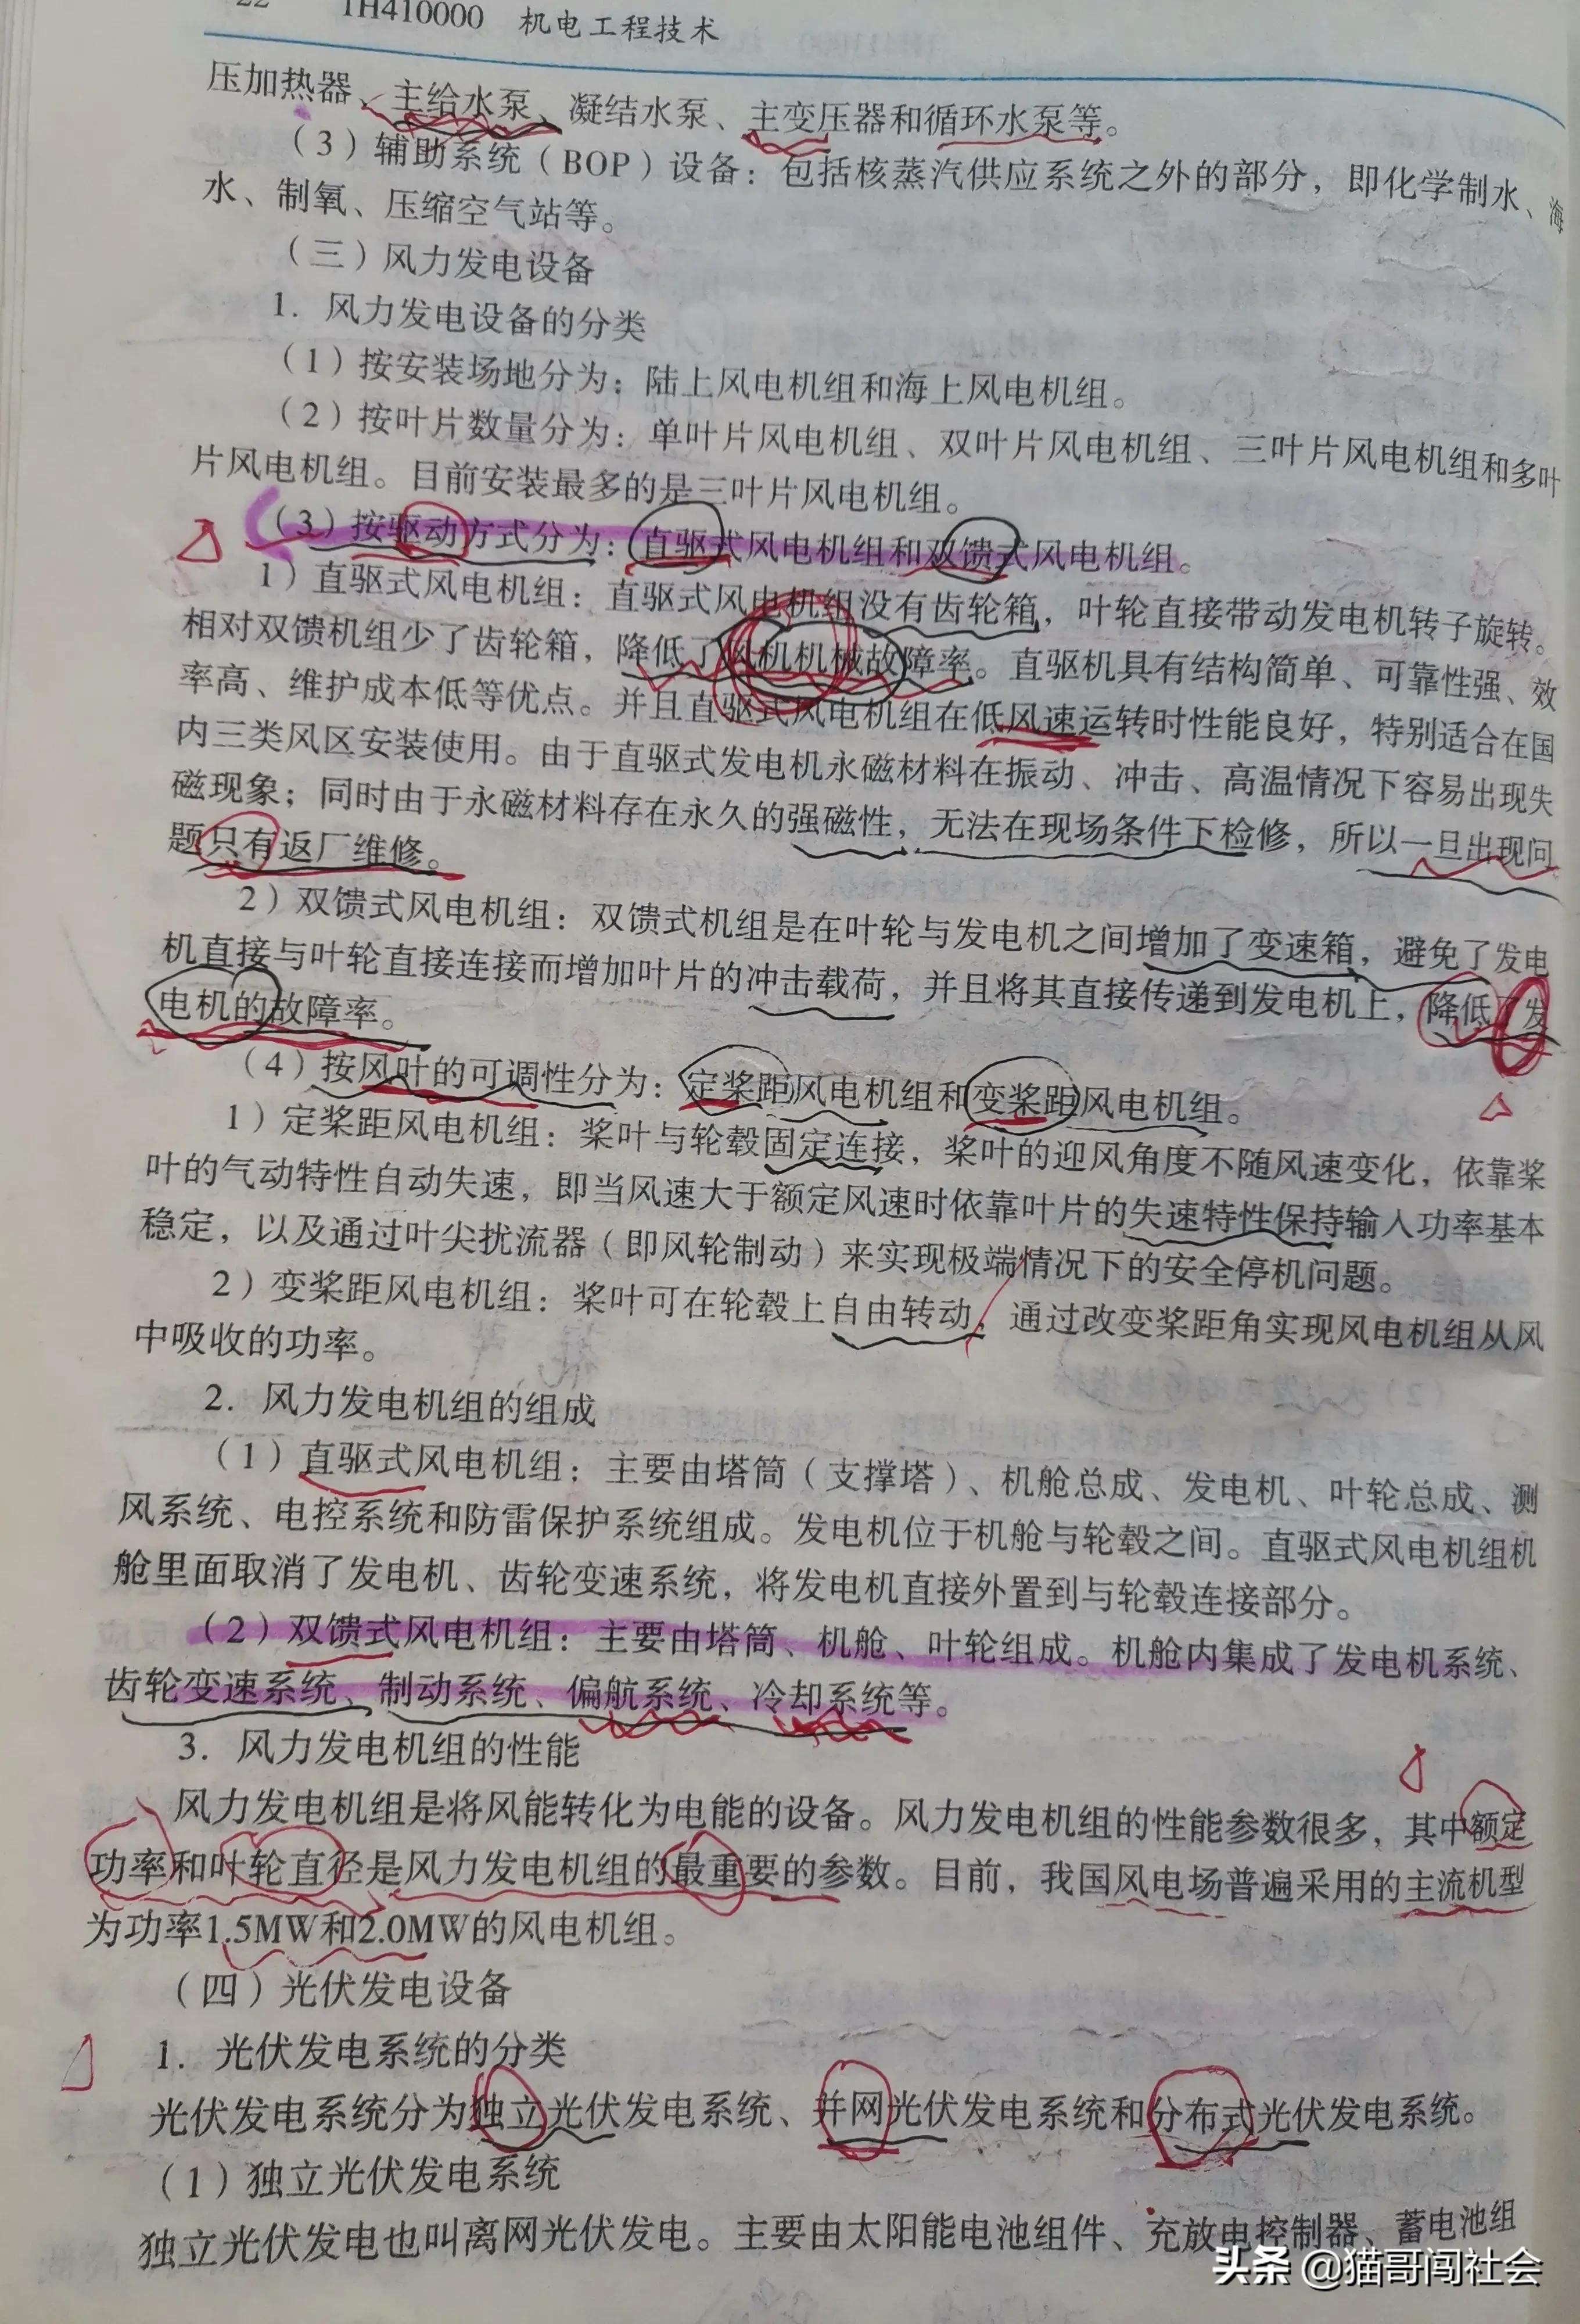 22 1H410000 机电工程技术
压加热器、主给水泵、凝结水泵、主变压器和循环水泵等。
（3）辅助系统（BOP）设备：包括核蒸汽供应系统之外的部分，即化学制水、海
水、制氧、压缩空气站等。
（三）风力发电设备
1. 风力发电设备的分类
（1）按安装场地分为：陆上风电机组和海上风电机组。
（2）按叶片数量分为：单叶片风电机组、双叶片风电机组、三叶片风电机组和多叶
片风电机组。目前安装最多的是三叶片风电机组。
（3）按驱动方式分为：直驱式风电机组和双馈式风电机组。
1）直驱式风电机组：直驱式风电机组没有齿轮箱，叶轮直接带动发电机转子旋转。
相对双馈机组少了齿轮箱，降低了风机机械故障率。直驱机具有结构简单、可靠性强、效
率高、维护成本低等优点。并且直驱式风电机组在低风速运转时性能良好，特别适合在国
内三类风区安装使用。由于直驱式发电机永磁材料在振动、冲击、高温情况下容易出现失
磁现象；同时由于永磁材料存在永久的强磁性，无法在现场条件下检修，所以一旦出现问
题只有返厂维修。
2）双馈式风电机组：双馈式机组是在叶轮与发电机之间增加了变速箱，避免了发电
机直接与叶轮直接连接而增加叶片的冲击载荷，并且将其直接传递到发电机上，降低了发
电机的故障率。
（4）按风叶的可调性分为：定桨距风电机组和变桨距风电机组。
1）定桨距风电机组：桨叶与轮毂固定连接，桨叶的迎风角度不随风速变化，依靠桨
叶的气动特性自动失速，即当风速大于额定风速时依靠叶片的失速特性保持输入功率基本
稳定，以及通过叶尖扰流器（即风轮制动）来实现极端情况下的安全停机问题。
2）变桨距风电机组：桨叶可在轮毂上自由转动，通过改变桨距角实现风电机组从风
中吸收的功率。
2. 风力发电机组的组成
（1）直驱式风电机组：主要由塔筒（支撑塔）、机舱总成、发电机、叶轮总成、测
风系统、电控系统和防雷保护系统组成。发电机位于机舱与轮毂之间。直驱式风电机组机
舱里面取消了发电机、齿轮变速系统，将发电机直接外置到与轮毂连接部分。
（2）双馈式风电机组：主要由塔筒、机舱、叶轮组成。机舱内集成了发电机系统、
齿轮变速系统、制动系统、偏航系统、冷却系统等。
3. 风力发电机组的性能
风力发电机组是将风能转化为电能的设备。风力发电机组的性能参数很多，其中额定
功率和叶轮直径是风力发电机组的最重要的参数。目前，我国风电场普遍采用的主流机型
为功率1.5MW和2.0MW的风电机组。
（四）光伏发电设备
1. 光伏发电系统的分类
光伏发电系统分为独立光伏发电系统、并网光伏发电系统和分布式光伏发电系统。
（1）独立光伏发电系统
独立光伏发电也叫离网光伏发电。主要由太阳能电池组件、充放电控制器、蓄电池组
头条 @猫哥闯社会